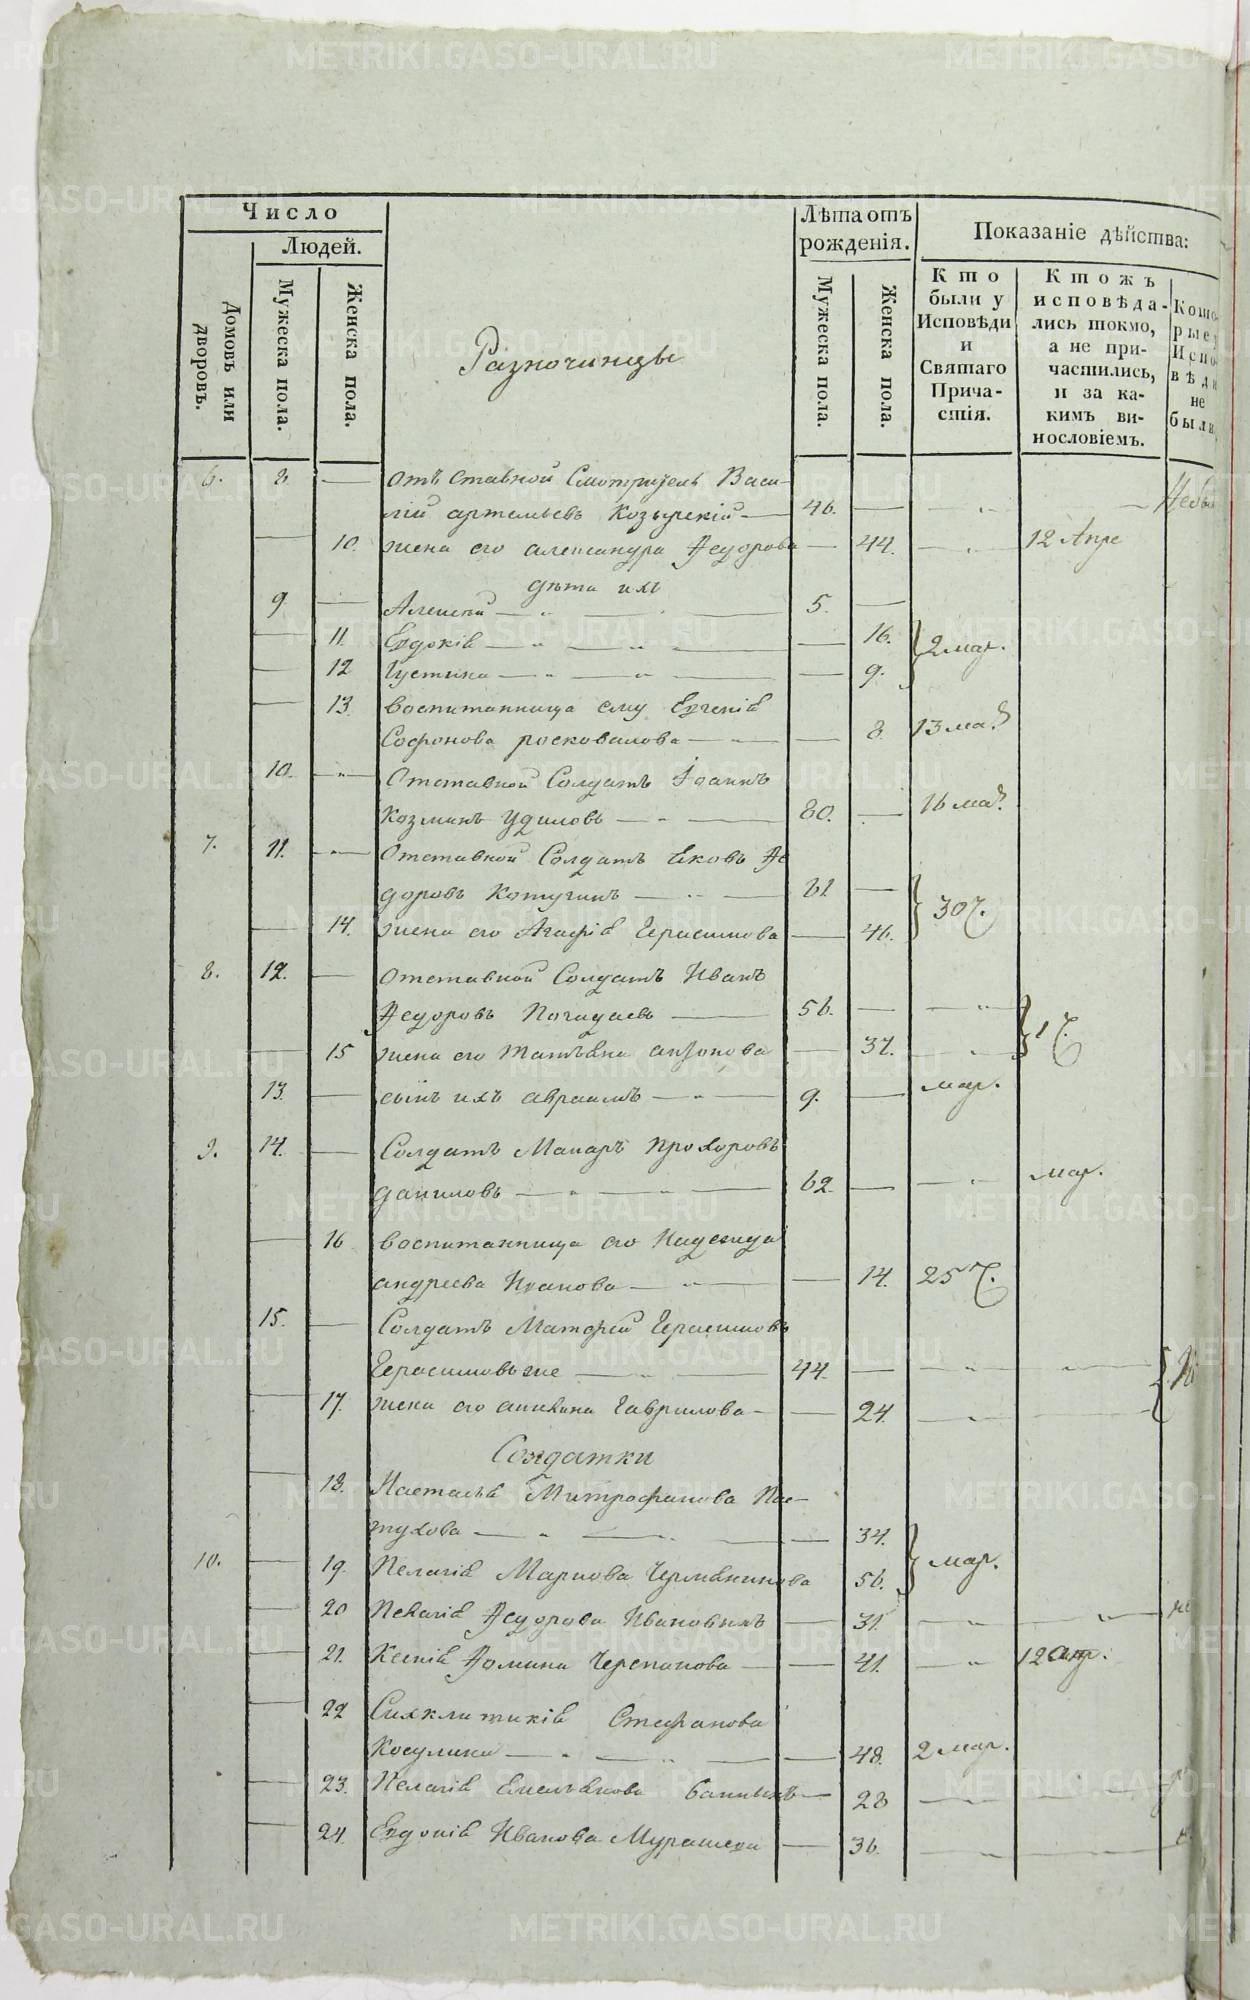 Число
Людей.
Домовъ или дворовъ.
Мужеска пола.
Женска пола.
Разночинцы
Лѣта отъ рожденія.
Мужеска пола.
Женска пола.
Показаніе дѣйства:
Кто были у Исповѣди и Святаго Причастія.
Ктожъ исповѣдались токмо, а не причастились, и за какимъ винословіемъ.
Которые у Исповѣди не были
6. 8 — отъставной Смотритель Васи-
лій артемьевъ Козырскій — 46. —
— 10. жена его александра Ѳедорова — 44. — 12 Апре
дѣти ихъ
9. — Алексѣй — 5. —
— 11. Евдокіѣ — 16. 2 мар.
— 12 Іустина — 9.
— 13. воспитанница ему Евгеніѣ
Софонова росковалова — 8 13 мар
10. — Отставной Солдатъ Іоаннъ
Козминъ Удиловъ — 80. — 16 мар.
7. 11. — Отставной Солдатъ Іяковъ Ѳе
доровъ Котугинъ — 61 —
— 14. жена его Агафіѣ Герасимова — 46. 30 Ч.
8. 12. — отставной Солдатъ Иванъ
Ѳедоровъ Погадаевъ — 56. —
— 15 жена его татьяна антонова — 37. 1 Ч.
13. — сынъ ихъ авраамъ — 9. — мар.
9. 14. — Солдатъ Макаръ Прохоровъ
даниловъ — 62. — мар.
— 16 воспитанница его Надежда
андреева Иванова — 14. 25 Ч.
15. — Солдатъ Матфей Герасимовъ
Герасимовъ же — 44. —
— 17. жена его Гаврилова — 24.
Солдатки
— 18. Настасьѣ Митрофанова Пас-
тухова — 34.
10. — 19. Пелагіѣ Маркова — 56. мар.
— 20 Пелагіѣ Ѳедорова Ивановыхъ — 31.
— 21. Ксеніѣ Ѳомина Черепанова — 41. 12 апр.
— 22 Сихклитикіѣ Стефанова
Косулина — 48. 2 мар.
— 23. Пелагіѣ Емельянова — 28
— 24. Евдокіѣ Иванова — 36.
METRIKI.GASO-URAL.RU